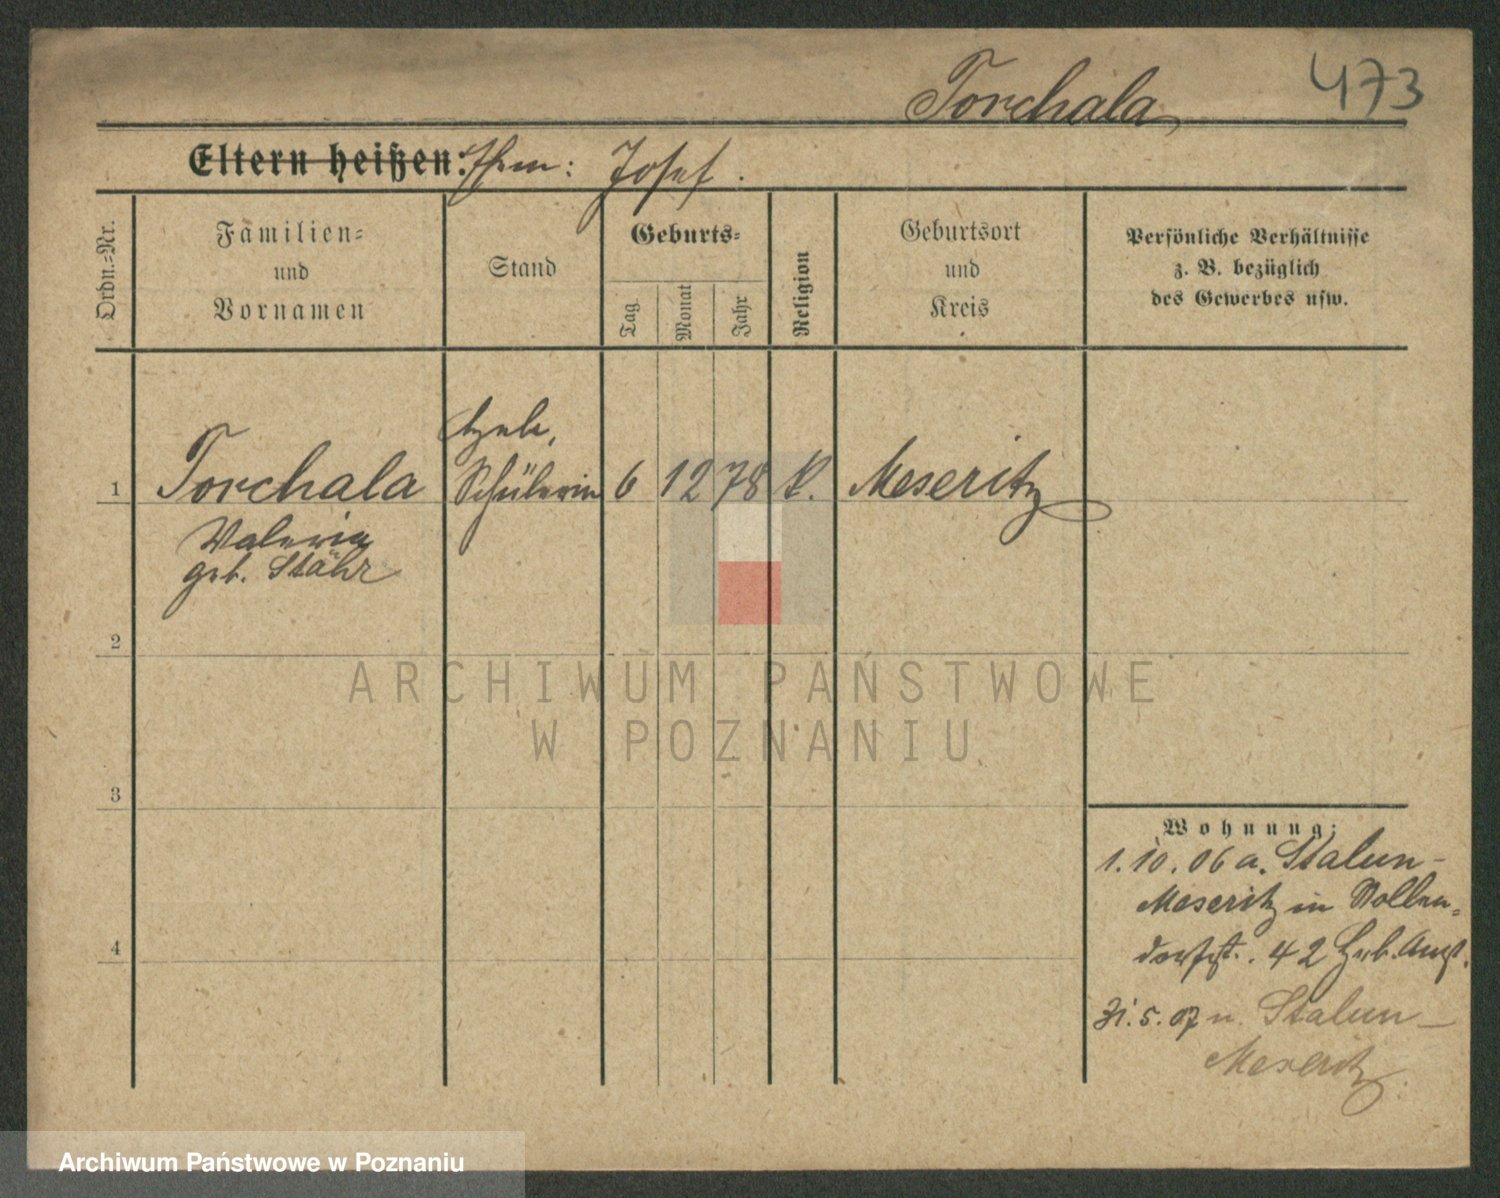 Torchala
473
Eltern heißen: Ehem: Josef.
Ordn.-Nr.
Familien-
und
Vornamen
Stand
Geburts-
Tag
Monat
Jahr
Religion
Geburtsort
und
Kreis
Persönliche Verhältnisse
z. B. bezüglich
des Gewerbes usw.
Schülerin
1 Torchala 6 12 78 k. Meseritz
Valeria
geb. Stähr
2
3
4
Wohnung:
1.10.06 a. Stalun-
Meseritz in
42
31.5.07 n. Stalun-
Meseritz.
ARCHIWUM PAŃSTWOWE
W POZNANIU
Archiwum Państwowe w Poznaniu